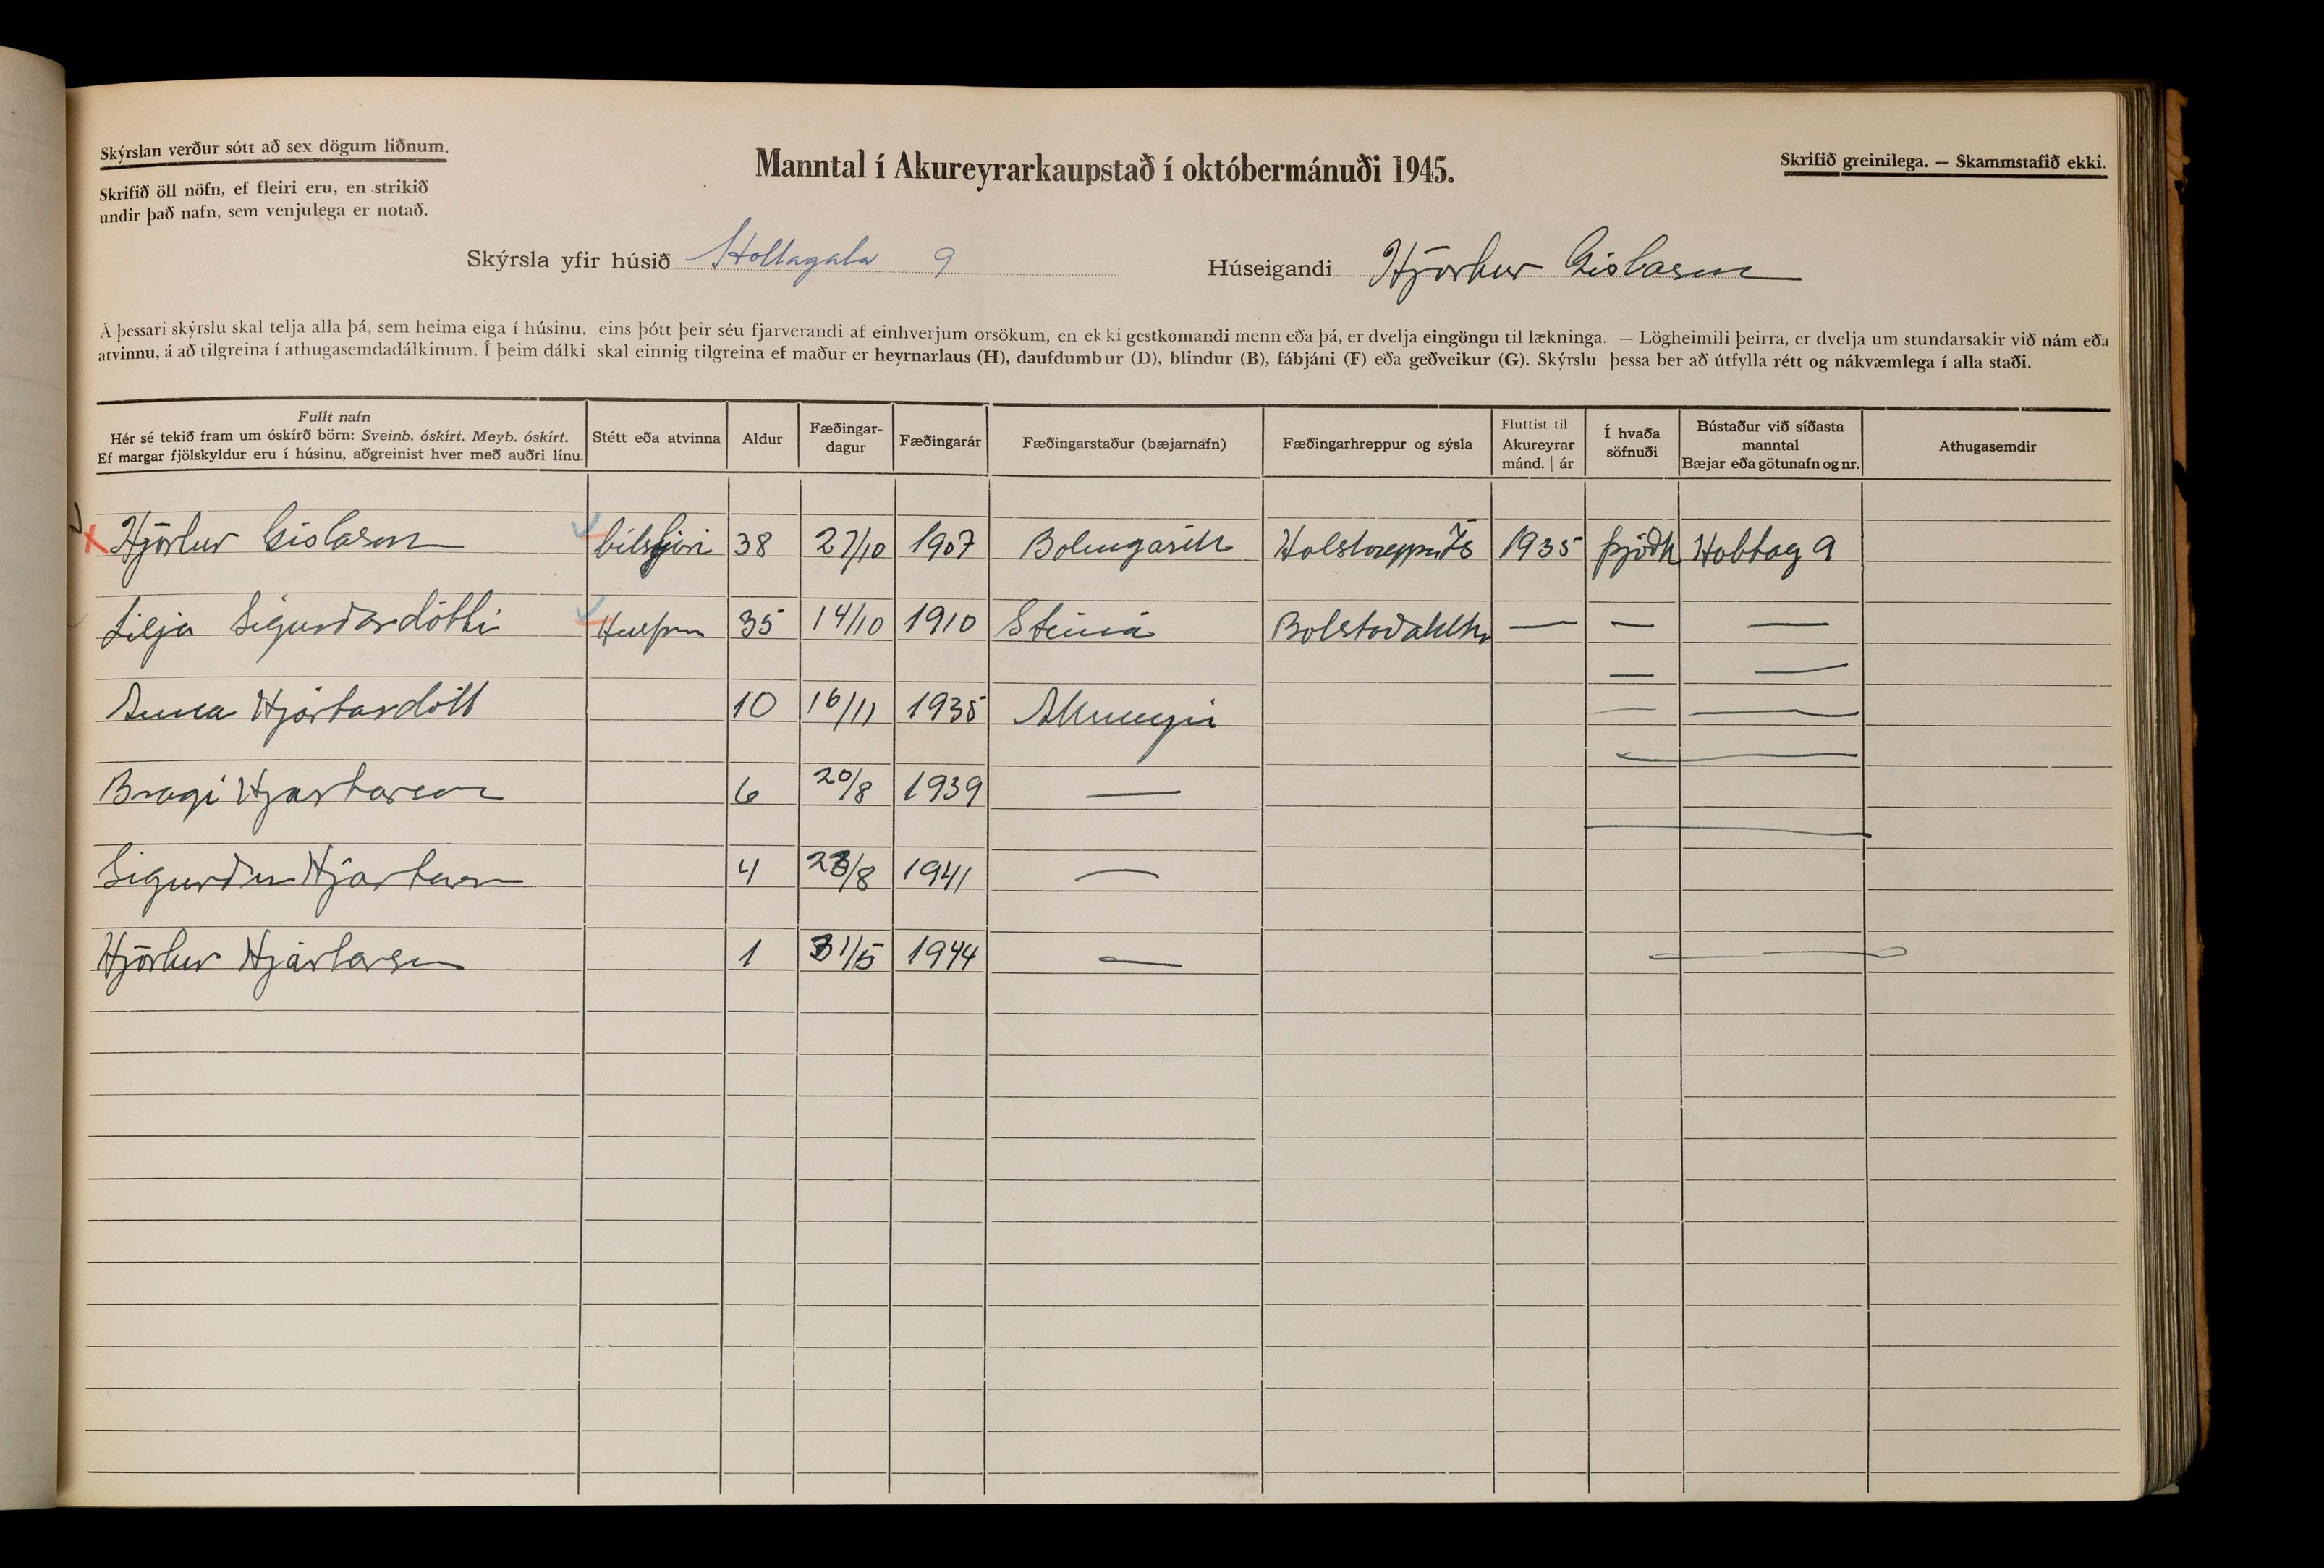 Skýrslan verður sótt að sex dögum liðnum.
Skrifið öll nöfn, ef fleiri eru, en strikið
undir það nafn, sem venjulega er notað.
Manntal í Akureyrarkaupstað í októbermánuði 1945.
Skrifið greinilega. — Skammstafið ekki.
Skýrsla yfir húsið Holtagata 9
Húseigandi Hjörtur Gíslason
Á þessari skýrslu skal telja alla þá, sem heima eiga í húsinu, eins þótt þeir séu fjarverandi af einhverjum orsökum, en ekki gestkomandi menn eða þá, er dvelja eingöngu til lækninga. — Lögheimili þeirra, er dvelja um stundarsakir við nám eða
atvinnu, á að tilgreina í athugasemdadálkinum. Í þeim dálki skal einnig tilgreina ef maður er heyrnarlaus (H), daufdumbur (D), blindur (B), fábjáni (F) eða geðveikur (G). Skýrslu þessa ber að útfylla rétt og nákvæmlega í alla staði.
Fullt nafn
Hér sé tekið fram um óskírð börn: Sveinb. óskírt. Meyb. óskírt.
Ef margar fjölskyldur eru í húsinu, aðgreinist hver með auðri línu.
Stétt eða atvinna
Aldur
Fæðingar-
dagur
Fæðingarár
Fæðingarstaður (bæjarnafn)
Fæðingarhreppur og sýsla
Fluttist til
Akureyrar
mánd. | ár
Í hvaða
söfnuði
Bústaður við síðasta
manntal
Bæjar eða götunafn og nr.
Athugasemdir
Hjörtur Gíslason bílstjóri 38 27/10 1907 Bolungarvík Holshreppur Ís 1935 þjóðk Holtag 9
Lilja Sigurðardóttir 35 14/10 1910 Steiná — — —
Anna Hjartardótt 10 16/11 1935 Akureyri — —
Bragi Hjartarson 6 20/8 1939 —
Sigurður Hjartarson 4 23/8 1941 —
Hjörtur Hjartarson 1 31/5 1944 — —